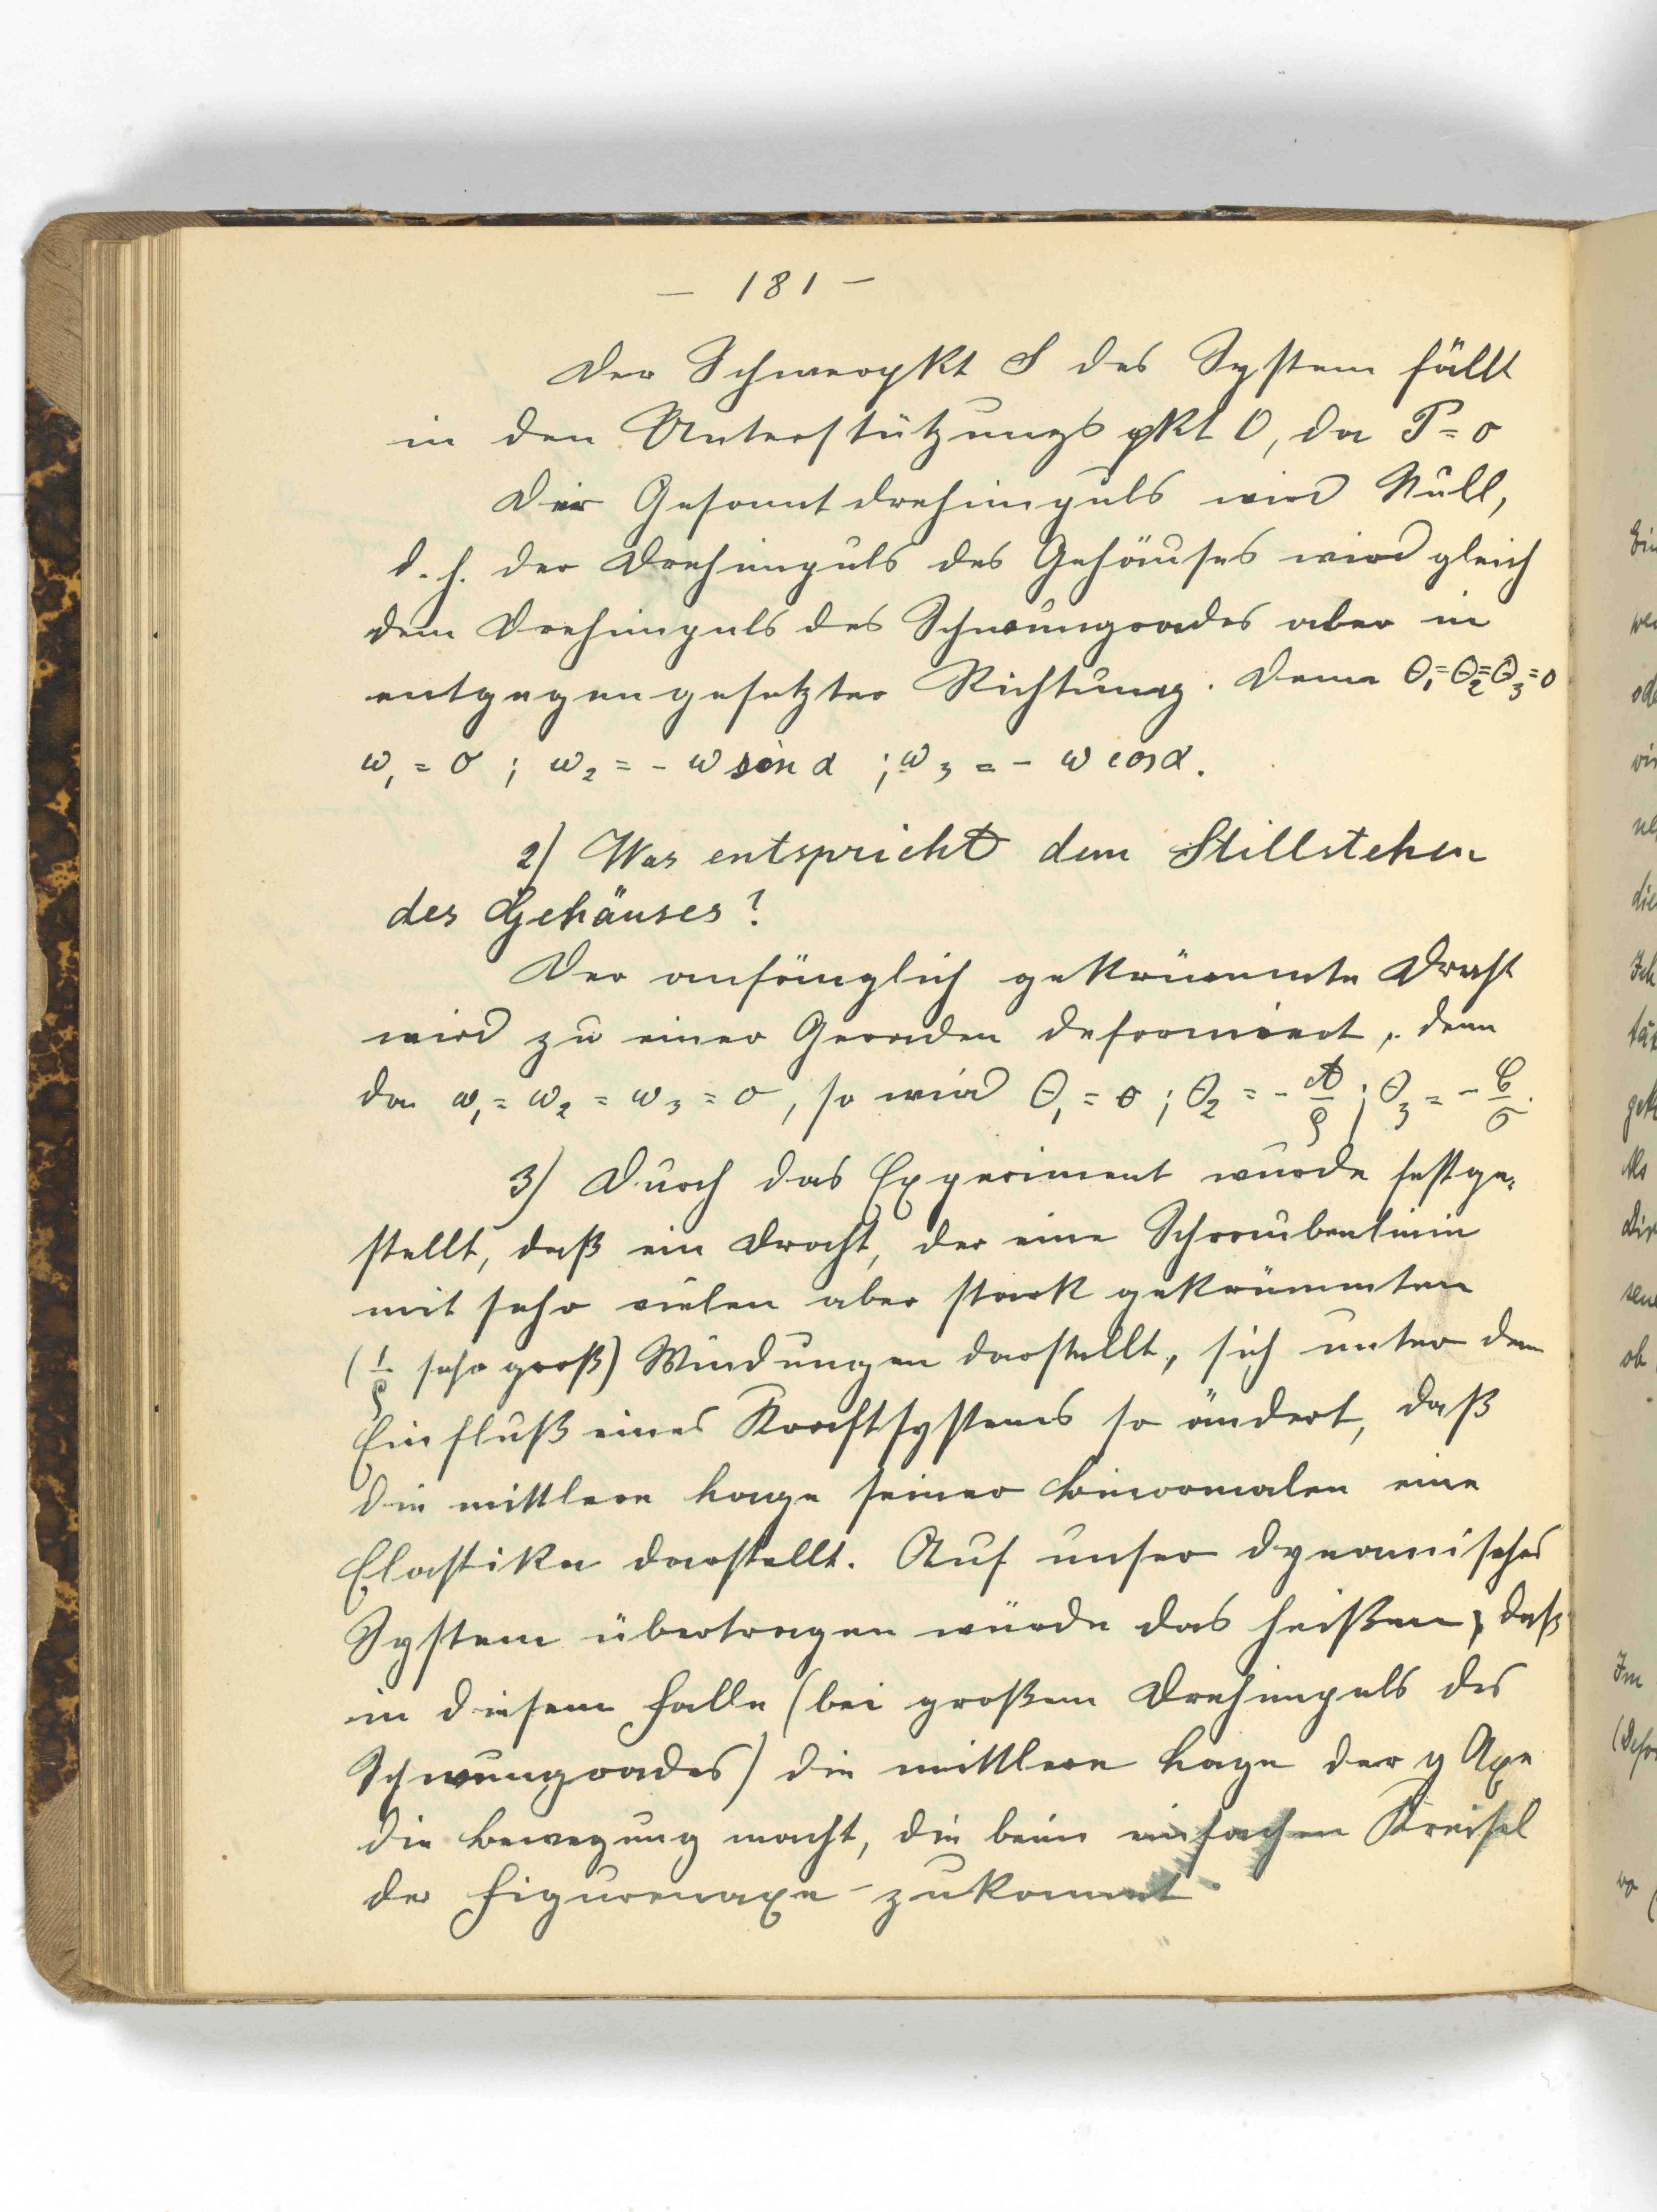 — 181 —
Der Schwerpkt S des System fällt
in den Unterstützungspkt O, da P = o
Der Gesamtdrehimpuls wird Null,
d. h. der Drehimpuls des Gehäuses wird gleich
dem Drehimpuls des Schwungrades aber in
entgegengesetzter Richtung. Denn Θ₁=Θ₂=Θ₃=0
ω₁ = o ; ω₂ = - ω sin α ; ω₃ = - ω cos α.
2) Was entspricht dem Stillstehen
des Gehäuses?
Der anfänglich gekrümmte Draht
wird zu einer Geraden deformiert, denn
da ω₁ = ω₂ = ω₃ = o, so wird Θ₁ = o ; Θ₂ = - A/ρ ; Θ₃ = - C/σ.
3) Durch das Experiment wurde festge-
stellt, daß ein Draht, der eine Schraubenlinie
mit sehr vielen aber stark gekrümmten
(1/ρ sehr groß) Windungen darstellt, sich unter dem
Einfluß eines Kraftsystems so ändert, daß
die mittlere Lage seiner Binormalen eine
Elastika darstellt. Auf unser dynamisches
System übertragen würde das heißen, daß
in diesem Falle (bei großem Drehimpuls des
Schwungrades) die mittlere Lage der y Axe
die Bewegung macht, die beim einfachen Kreisel
der Figurenaxe zukommt.